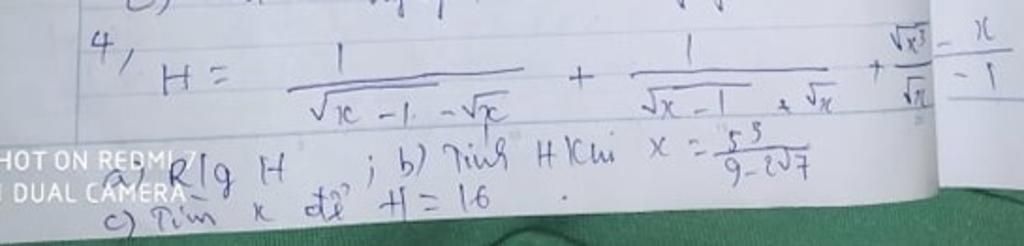 4, H = 1/(√x-1 - √x) + 1/(√x-1 + √x) + (√x³ - x)/(√x - 1)
a) R/g H ; b) Tính H khi x = 53/(9-2√7)
c) Tìm x để H = 16.
SHOT ON REDMI 7
DUAL CAMERA